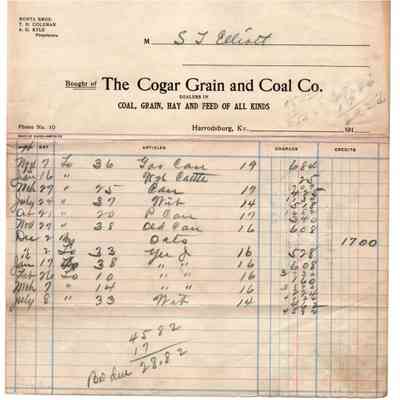 BONTA BROS.
T. H. COLEMAN
A. G. KYLE
Proprietors
M S T Elliott
Bought of The Cogar Grain and Coal Co.
DEALERS IN
COAL, GRAIN, HAY AND FEED OF ALL KINDS
Phone No. 10
Harrodsburg, Ky. 191
DAY ARTICLES CHARGES CREDITS
7 To 36 Can 19 684
Jan 16 " Wgh Cattle 25
Mch 27 " 25 Can 17
July 24 " 37 Wit 14
21 " 20 P Can 17
Nov 27 " 38 Old Can 16 608
Dec 2 By Oats 17.00
2 To 33 16 528
Jan 17 38 " " 16 608
Feb 26 To 10 " " 16
Mch 7 " 14 " " 16
July 8 " 33 Wit 14
45 82
17
Bal due 28.82